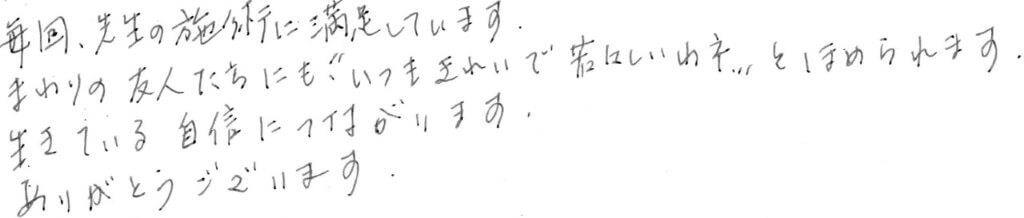 毎回、先生の施術に満足しています.
まわりの友人たちにも“いつもきれいで若々しいわネ”とほめられます.
生きている自信につながります.
ありがとうございます.